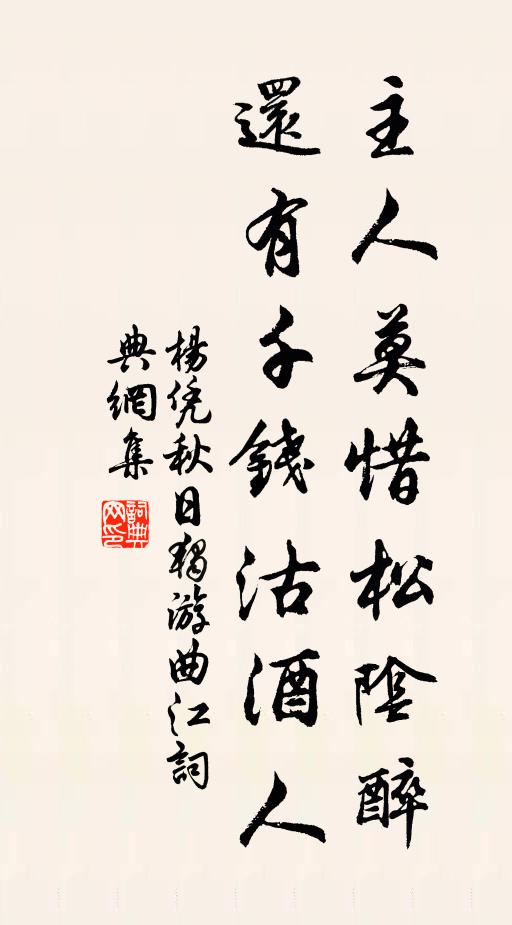 主人莫惜松陰醉
還有千錢沽酒人
楊凭秋日獨游曲江詞
典網集
詞典网印